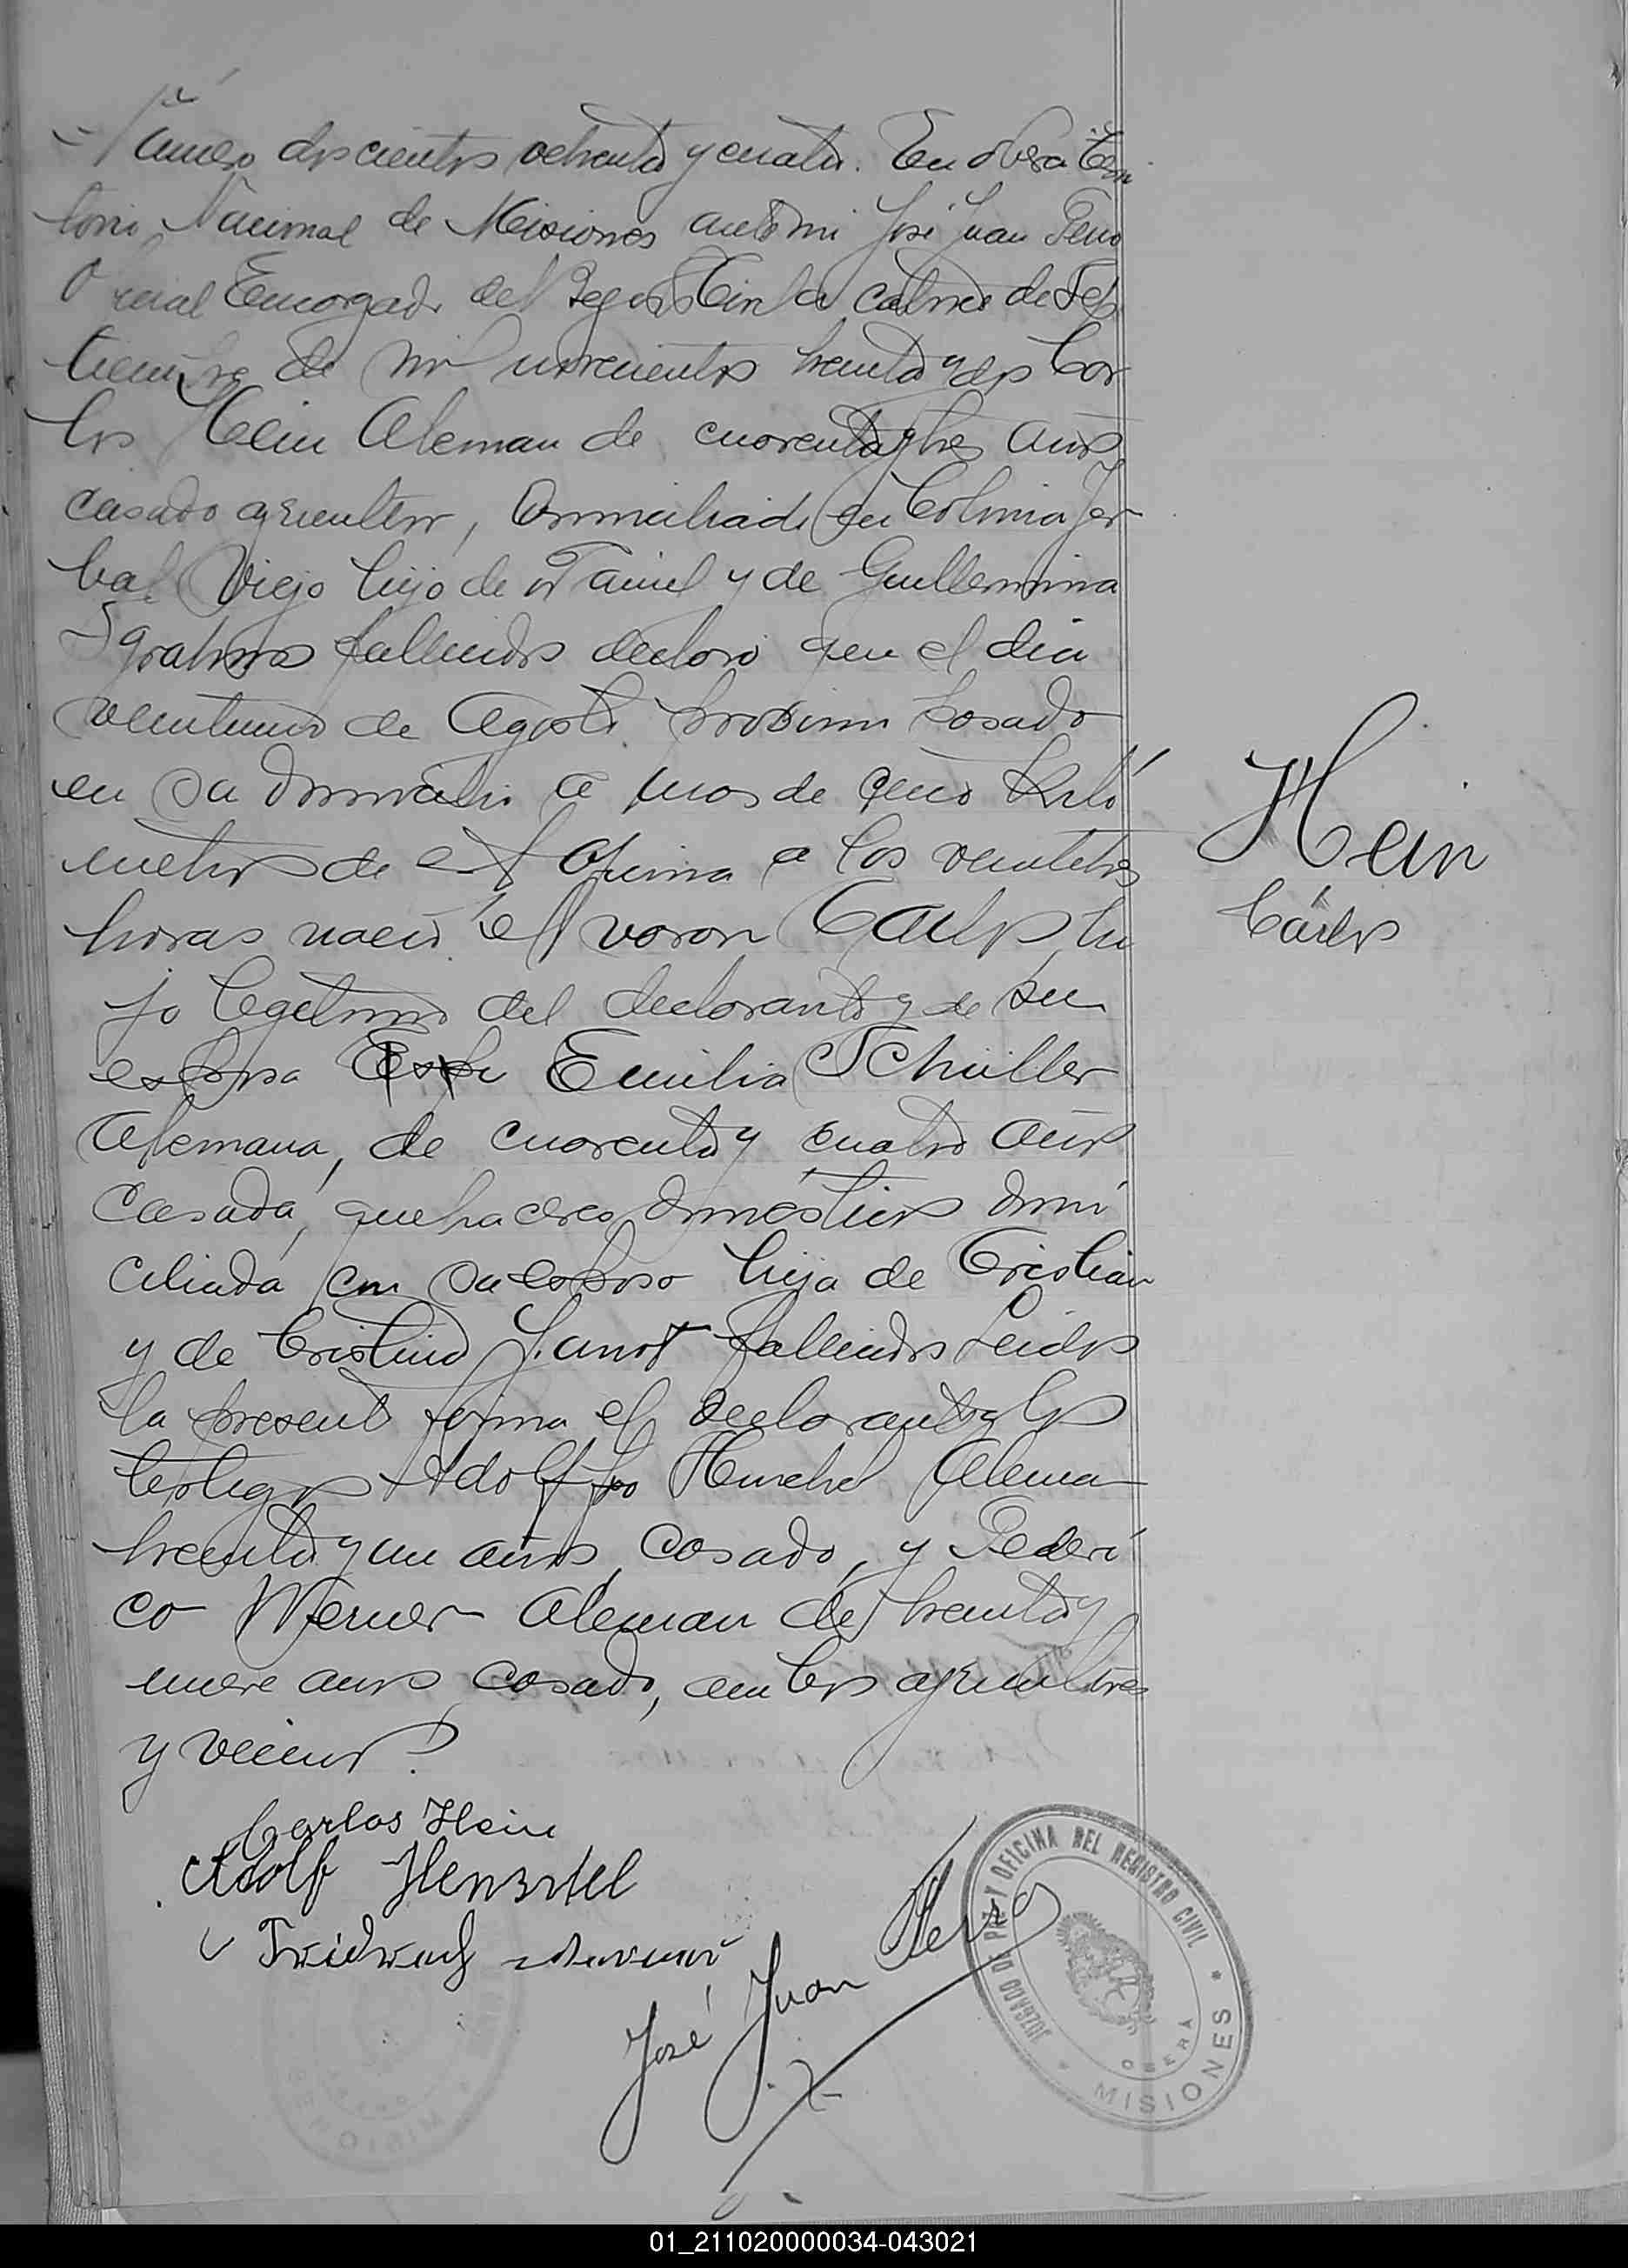 Número doscientos ochenta y cuatro. En Oberá Terri
torio Nacional de Misiones ante mi José Juan
Oficial Encargado del Registro Civil a catorce de Sep
tiembre de mil novecientos treinta y dos Car
los Hein Aleman de cuarenta y tres años
casado agricultor, domiciliado en Colonia Yer
bal Viejo hijo de Daniel y de Guillermina
fallecidos declaró que el dia
veintiuno de Agosto proximo pasado
en su domicilio a mas de cinco Kiló
metros de esta Oficina a las veintitres
horas nació el varon Carlos hi
jo legitimo del declarante y de su
esposa Emilia Schüller
Alemana, de cuarenta y cuatro años
casada, quehaceres domésticos domi
ciliada con su esposo hija de Cristian
y de Cristina fallecidos Leida
la presente firma el declarante y los
testigos Adolffo Henchel Aleman
treinta y un años, casado, y Federi
co Werner Aleman de treinta y
nueve años casado, ambos agricultores
y vecinos
Hein
Cárlos
Carlos Hein
Adolf Henschel
José Juan
JUZGADO DE PAZ Y OFICINA DEL REGISTRO CIVIL
OBERÁ
* MISIONES *
01_211020000034-043021